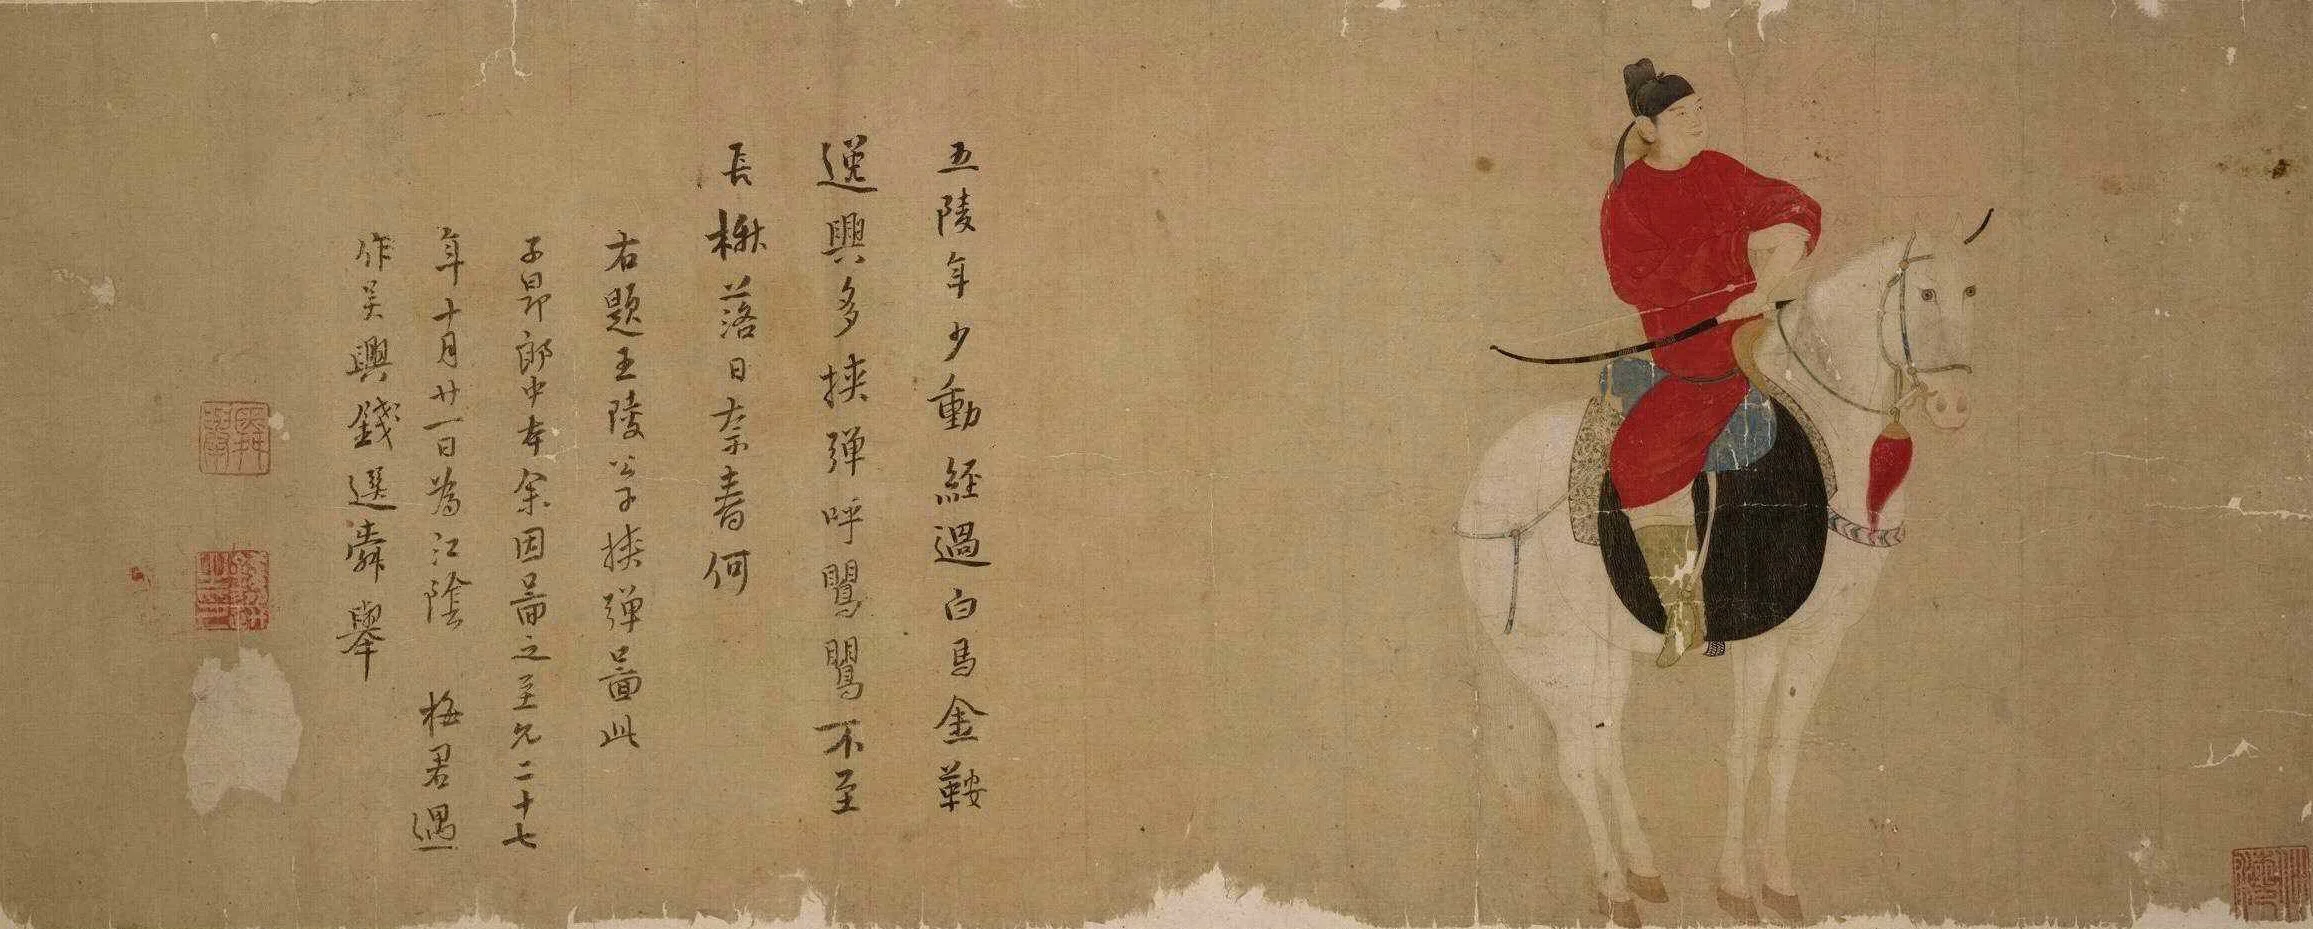 五陵年少動經過白馬金鞍
逸興多挾弹呼鷪鷪不至
長楸落日柰春何
右題王陵公子挾弹啚此
子昂郎中本余因啚之至元二十七
年十月廿一日為江陰 梅君遇
作吴興錢選舜舉